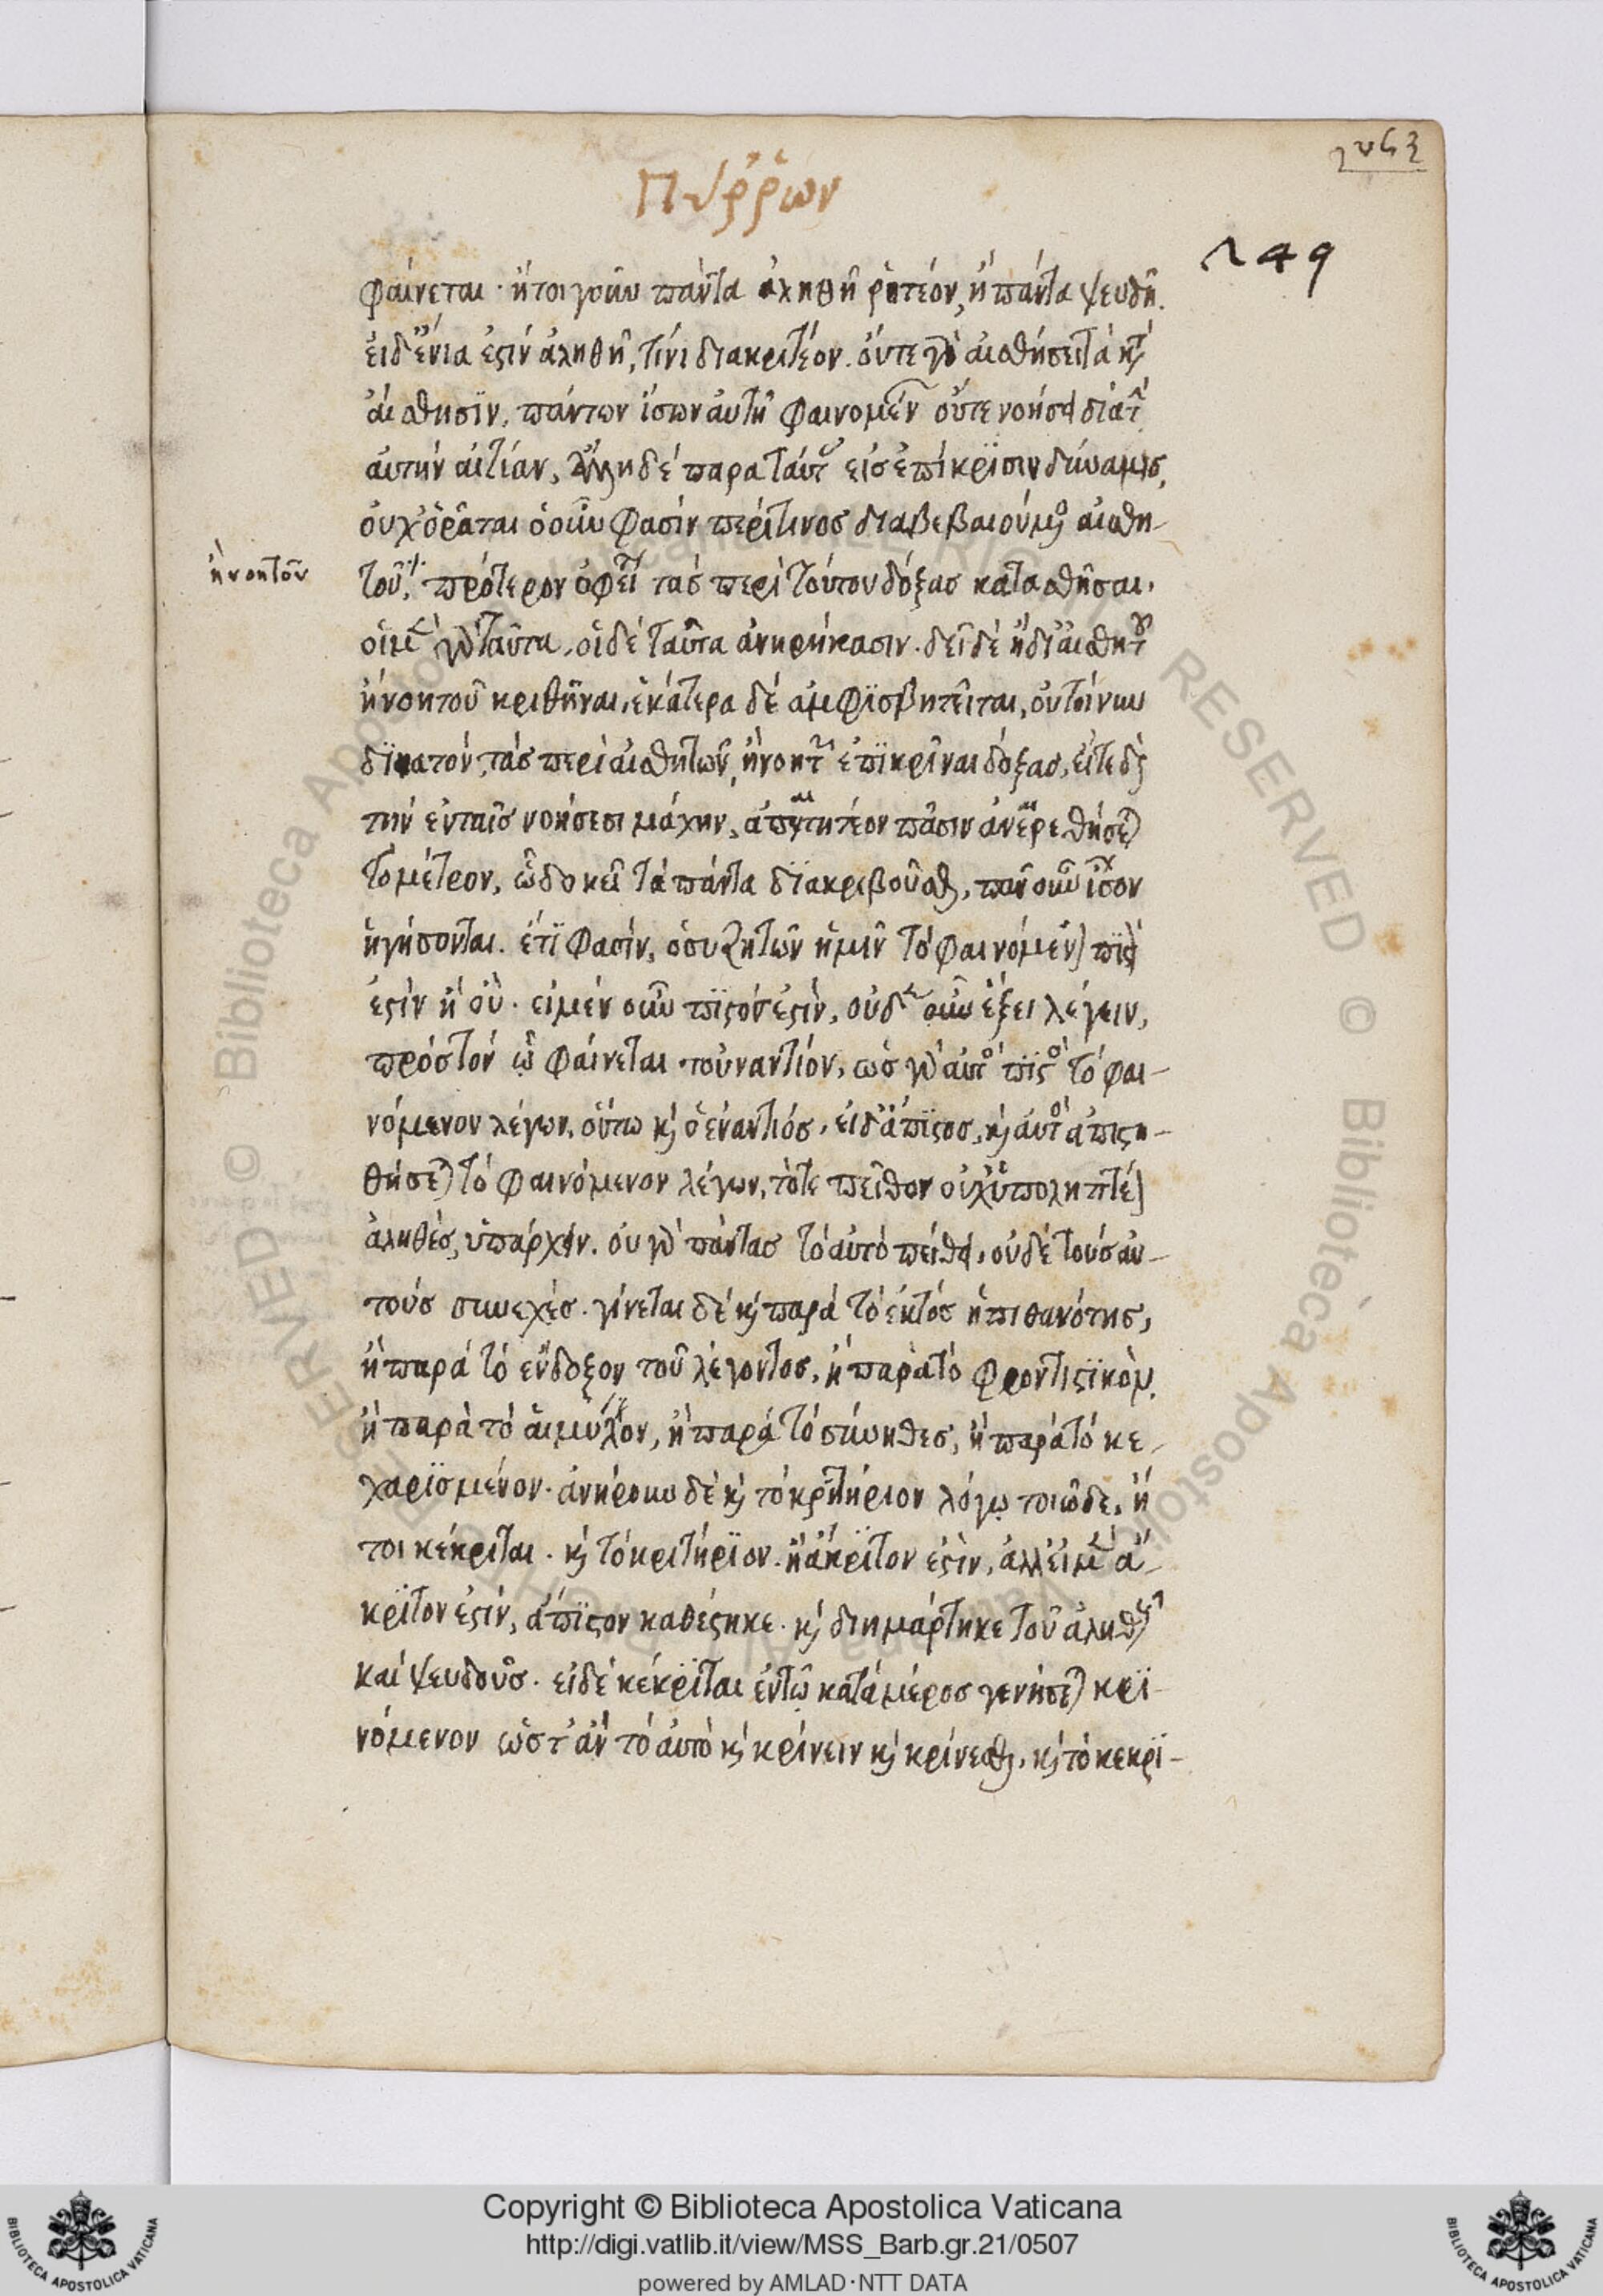 Πύῤῥων
249
φαίνεται· ἤτοι γοῦν πάντα ἀληθῆ ρητέον, ἢ πάντα ψευδῆ.
εἰ δ' ἔνια ἐστὶν ἀληθῆ, τίνι διακριτέον. οὔτε γὰρ αἰσθήσει τὰ κατ'
αἴσθησιν, πάντων ἴσων αὐτῇ φαινομένων οὔτε νοήσει διὰ τὴν
αὐτὴν αἰτίαν, ἄλλη δὲ παρὰ ταύτας εἰς ἐπίκρισιν δύναμις,
οὐχ ὁρᾶται ὁ οὖν φασὶν περί τινος διαβεβαιούμενος αἰσθη-
ἢ νοητοῦ
τοῦ, πρότερον ὀφείλει τὰς περὶ τούτου δόξας καταστῆσαι,
οἱ μὲν γὰρ ταῦτα, οἱ δὲ ταῦτα ἀνῃρήκασιν. δεῖ δὲ ἢ δι' αἰσθητοῦ
ἢ νοητοῦ κριθῆναι, ἑκάτερα δὲ ἀμφισβητεῖται, οὐ τοίνυν
δυνατὸν, τὰς περὶ αἰσθητῶν, ἢ νοητῶν ἐπικρῖναι δόξας, εἴτε διὰ
τὴν ἐν ταῖς νοήσεσι μάχην, ἀπιστητέον πᾶσιν ἀναιρεθήσεται
τὸ μέτρον, ᾧ δοκεῖ τὰ πάντα διακριβοῦσθαι, πᾶν οὖν ἴσον
ἡγήσονται. ἔτι φασὶν, ὁ συζητῶν ἡμῖν τὸ φαινόμενον πιστὸς
ἐστὶν ἢ οὔ. εἰ μὲν οὖν πιστὸς ἐστὶν, οὐδὲν οὖν ἕξει λέγειν,
πρὸς τὸν ᾧ φαίνεται τοὐναντίον, ὡς γὰρ αὐτὸς πιστὸς τὸ φαι-
νόμενον λέγων, οὕτω καὶ ὁ ἐναντίος, εἰ δ' ἄπιστος, καὶ αὐτὸς ἀπιστη-
θήσεται τὸ φαινόμενον λέγων, τότε πεῖθον οὐχ ὑποληπτέον
ἀληθὲς, ὑπάρχειν. οὐ γὰρ πάντας τὸ αὐτὸ πείθει, οὐδὲ τοὺς αὐ-
τοὺς συνεχὲς. γίνεται δὲ καὶ παρὰ τὸ ἐκτὸς ἡ πιθανότης,
ἢ παρὰ τὸ ἔνδοξον τοῦ λέγοντος, ἢ παρὰ τὸ φροντιστικὸν,
ἢ παρὰ τὸ αἱμύλον, ἢ παρὰ τὸ σύνηθες, ἢ παρὰ τὸ κε-
χαρισμένον. ἀνῄρουν δὲ καὶ τὸ κριτήριον λόγῳ τοιῷδε, ἤ
τοι κέκριται. καὶ τὸ κριτήριον. ἢ ἄκριτον ἐστὶν, ἀλλ' εἰ μὲν ἄ-
κριτον ἐστὶν, ἄπιστον καθέστηκε. καὶ διημάρτηκε τοῦ ἀληθοῦς
καὶ ψευδοῦς. εἰ δὲ κέκριται ἐν τῷ κατὰ μέρος γενήσεται κρι-
νόμενον ὥστ' ἂν τὸ αὐτὸ καὶ κρίνειν καὶ κρίνεσθαι, καὶ τὸ κεκρι-
© Biblioteca Apostolica Vaticana ALL RIGHTS RESERVED
Copyright © Biblioteca Apostolica Vaticana
http://digi.vatlib.it/view/MSS_Barb.gr.21/0507
powered by AMLAD·NTT DATA
BIBLIOTECA APOSTOLICA VATICANA
BIBLIOTECA APOSTOLICA VATICANA